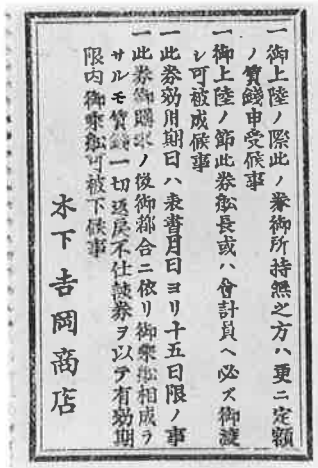 一御上陸ノ際此ノ券御所持無之方ハ更ニ定額
ノ賃錢申受候事
一御上陸ノ節此券舩長或ハ會計員ヘ必ズ御渡
シ可被成候事
一此券効用期日ハ表書月日ヨリ十五日限ノ事
一此券御購求ノ後御都合ニ依リ御乘舩相成ラ
サルモ賃錢一切返戻不仕該券ヲ以テ有効期
限内御乘舩可被下候事
木下吉岡商店